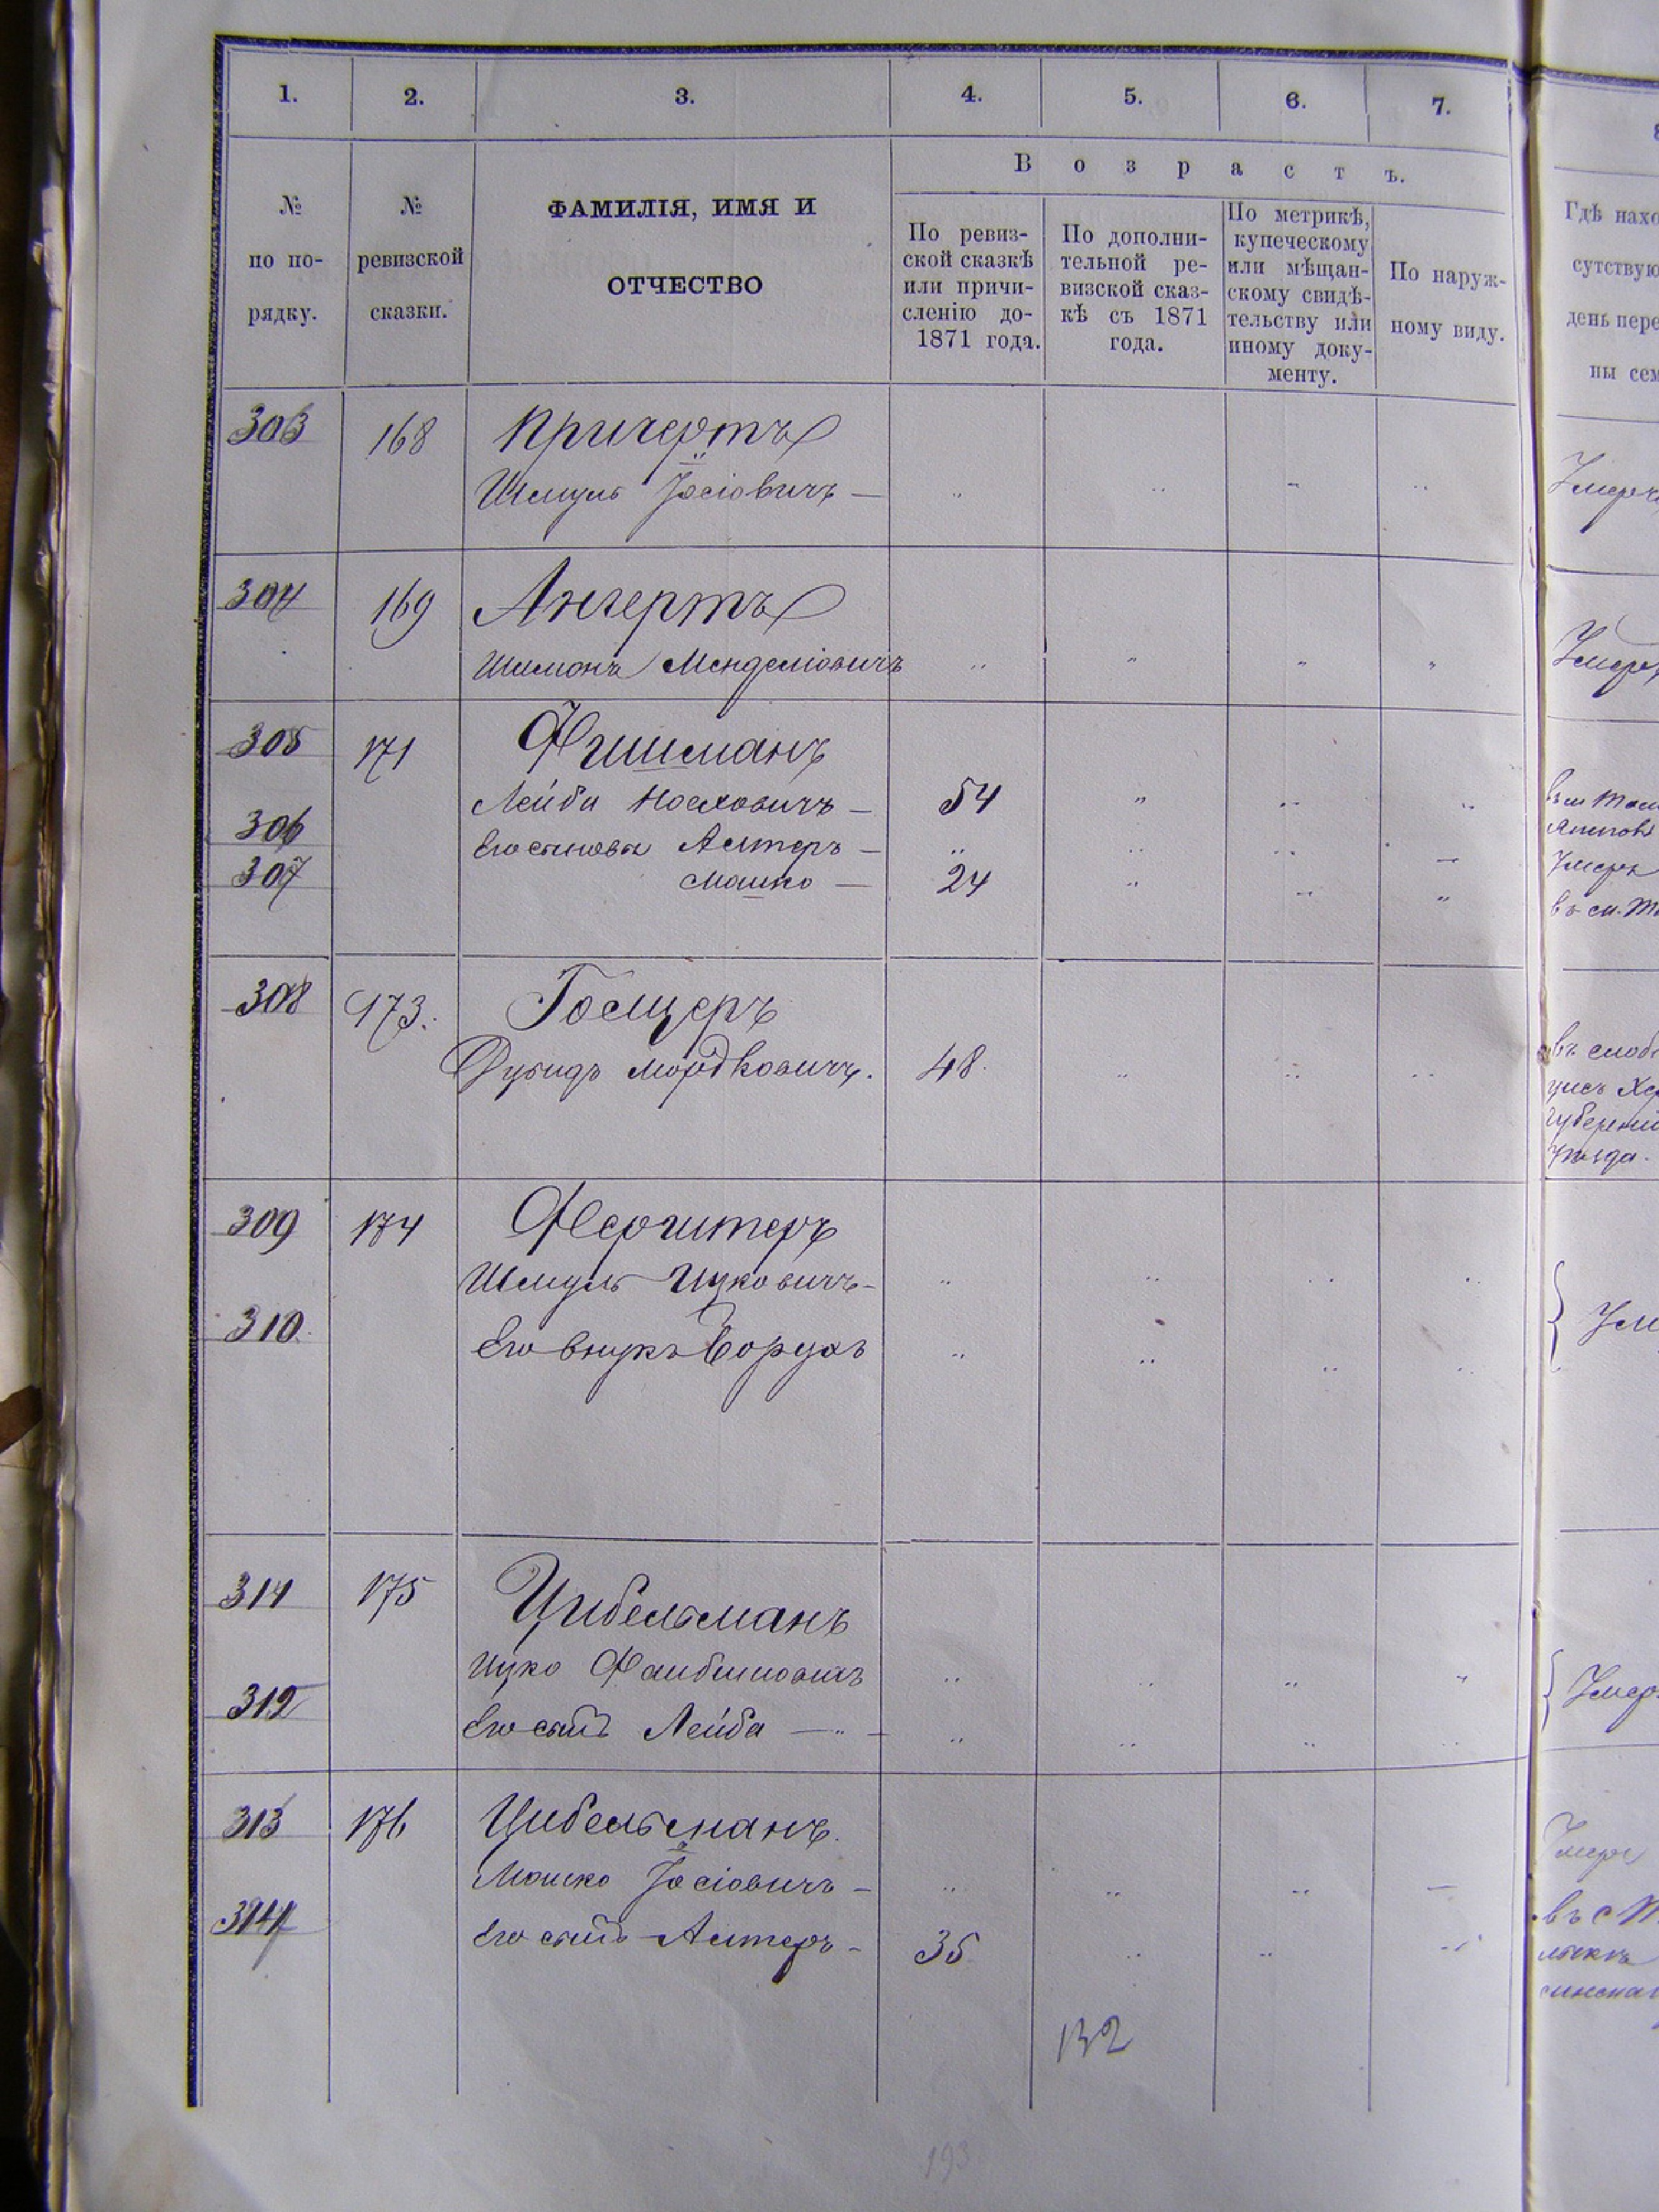 1. 2. 3. 4. 5. 6. 7.
№ по порядку.
№ ревизской сказки.
ФАМИЛІЯ, ИМЯ И
ОТЧЕСТВО
Возрастъ.
По ревиз-
ской сказкѣ
или причи-
сленію до-
1871 года.
По дополни-
тельной ре-
визской сказ-
кѣ съ 1871
года.
По метрикѣ,
купеческому
или мѣщан-
скому свидѣ-
тельству или
иному доку-
менту.
По наруж-
ному виду.
Гдѣ нахо
сутствую
день пере
ны сем
303 168 Причертъ
Шмуль Іосіовичъ — Умеръ
304 169 Ангертъ
Шимонъ Менделіовичъ Умеръ
305 171 Фишманъ
Лейба Носховичъ — 54
306 Его сыновья Алтеръ — Умеръ
307 Мошко — 24
308 173. Гольцеръ
Дувидъ Мордковичъ. 48.
въ слоб
губерніи
уѣзда.
309 174 Фергитеръ
Шмуль Ицковичъ —
310. Его внукъ Борухъ
311 175 Цибельманъ
Ицко Фаибишовичъ
312 Его сынъ Лейба — Умер
313 176 Цибельманъ.
Мошко Іосіовичъ — Умеръ
314 Его сынъ Алтеръ — 35
132
193